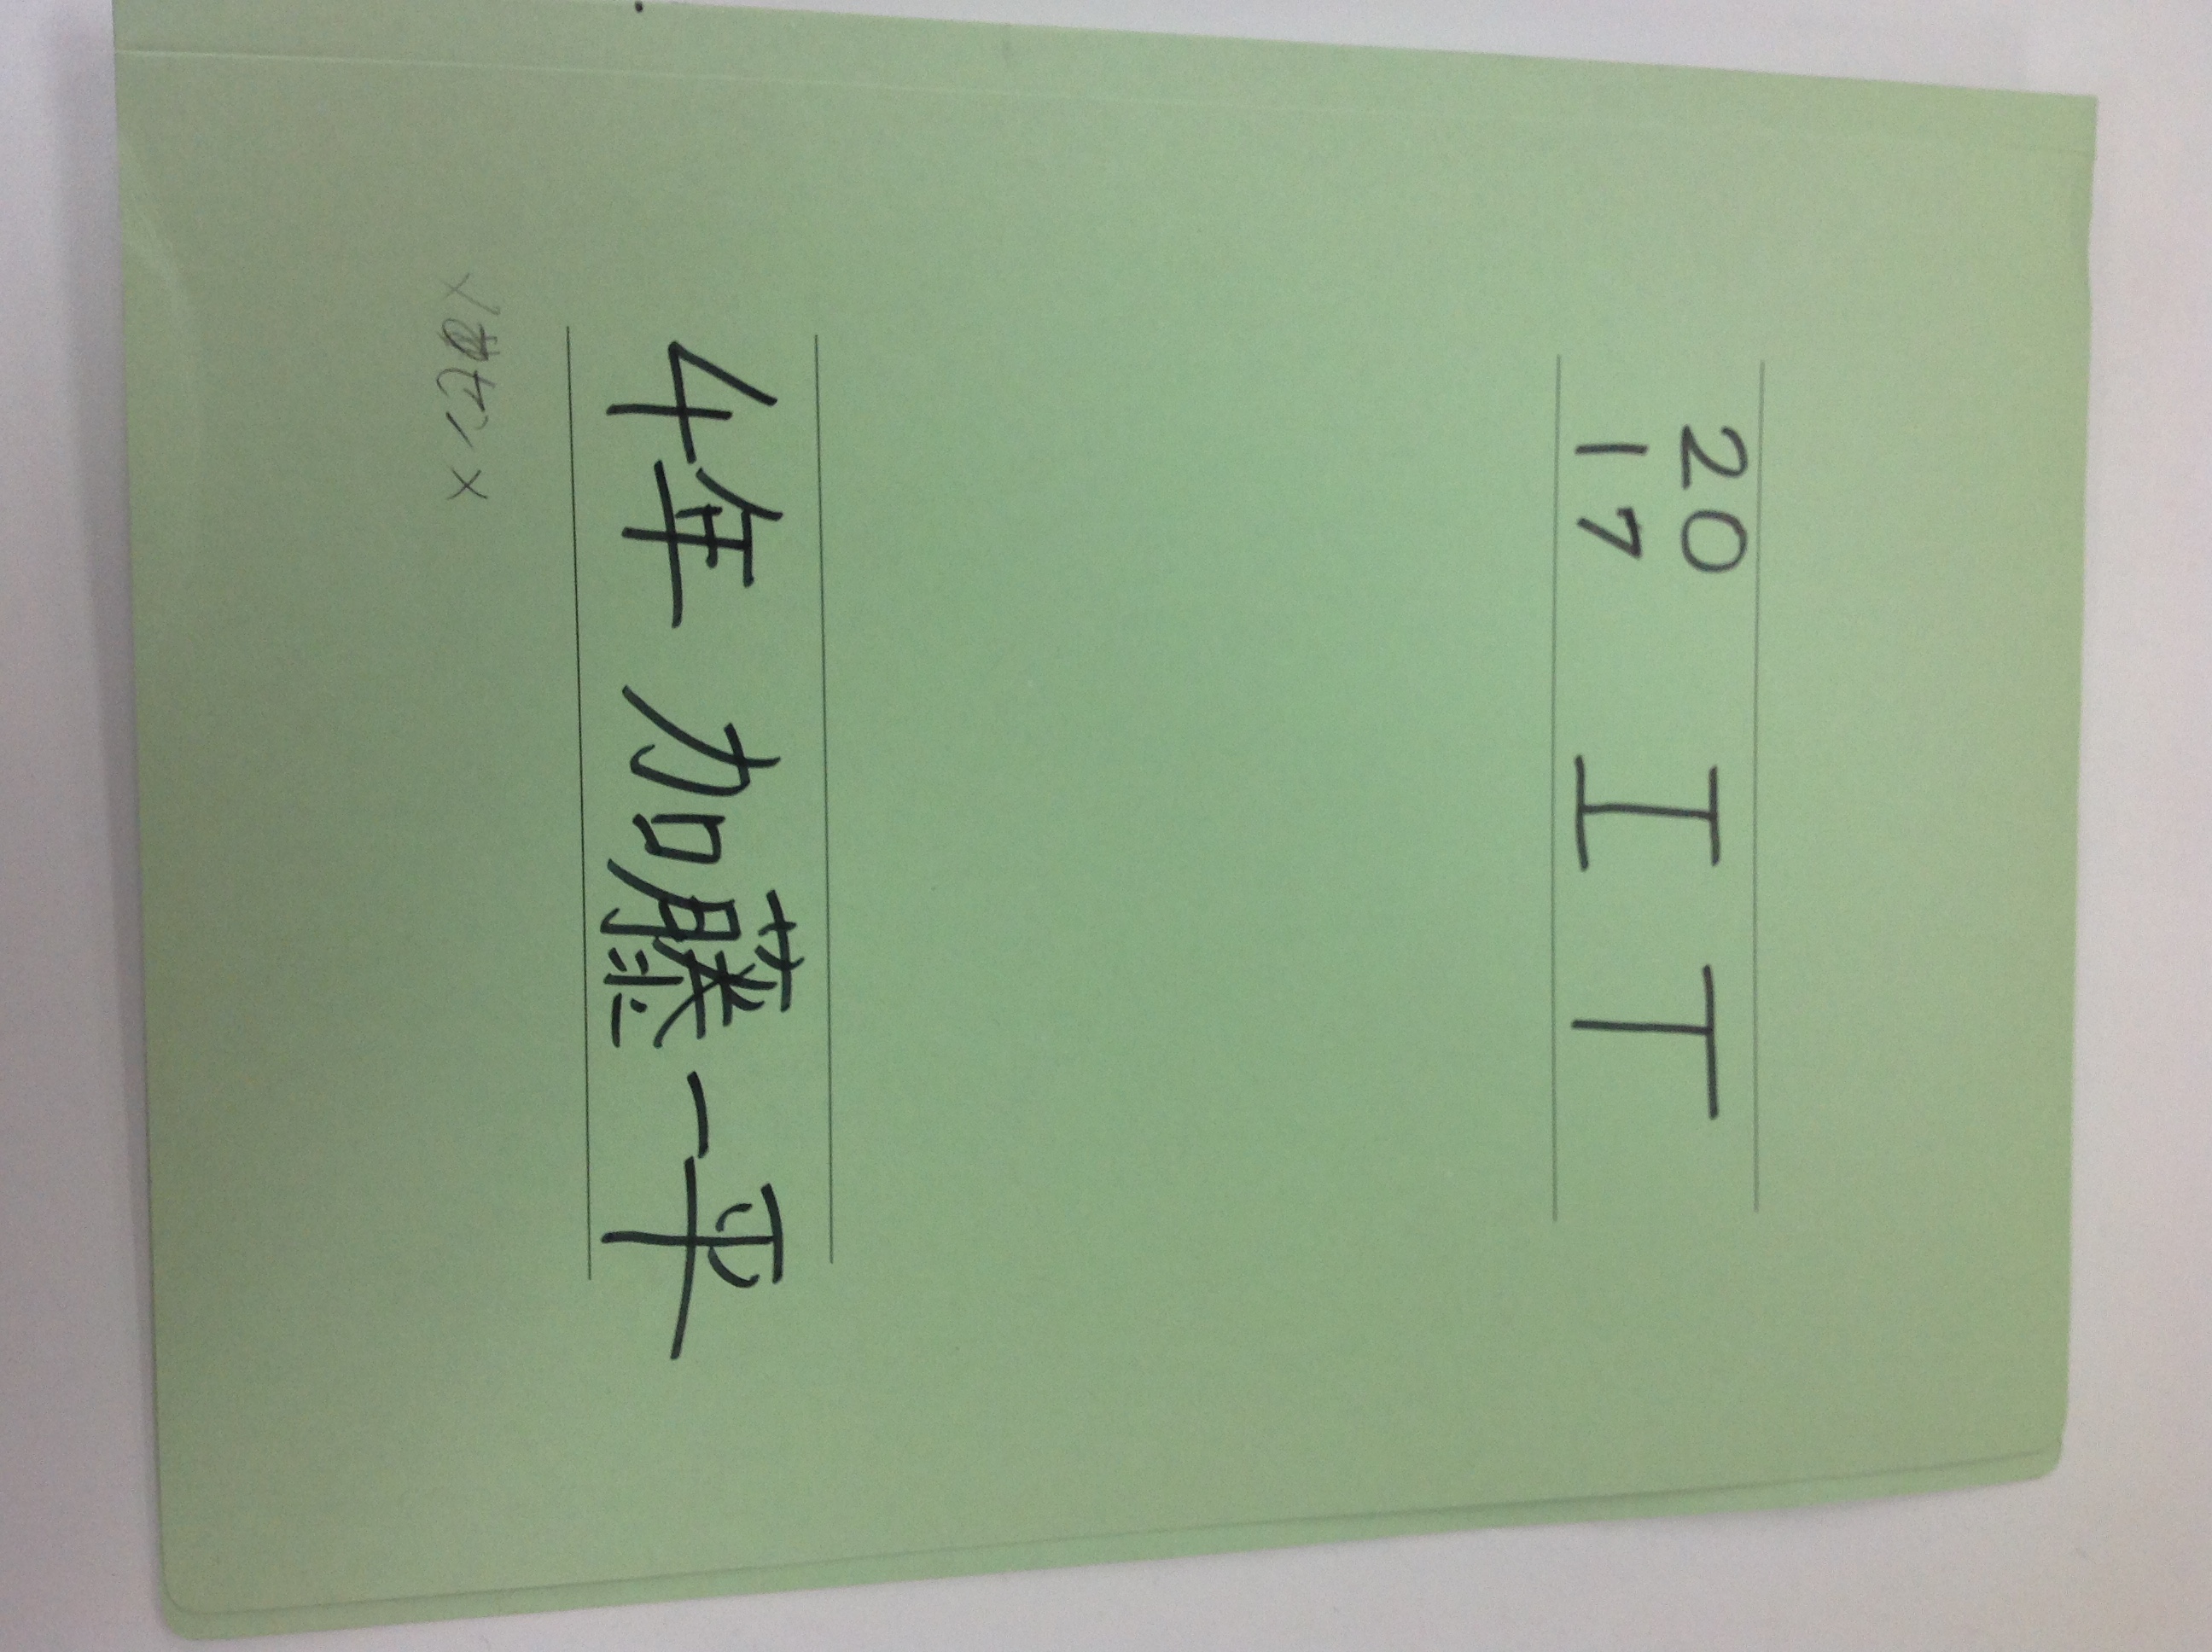 20
17 IT
4年 加藤一平